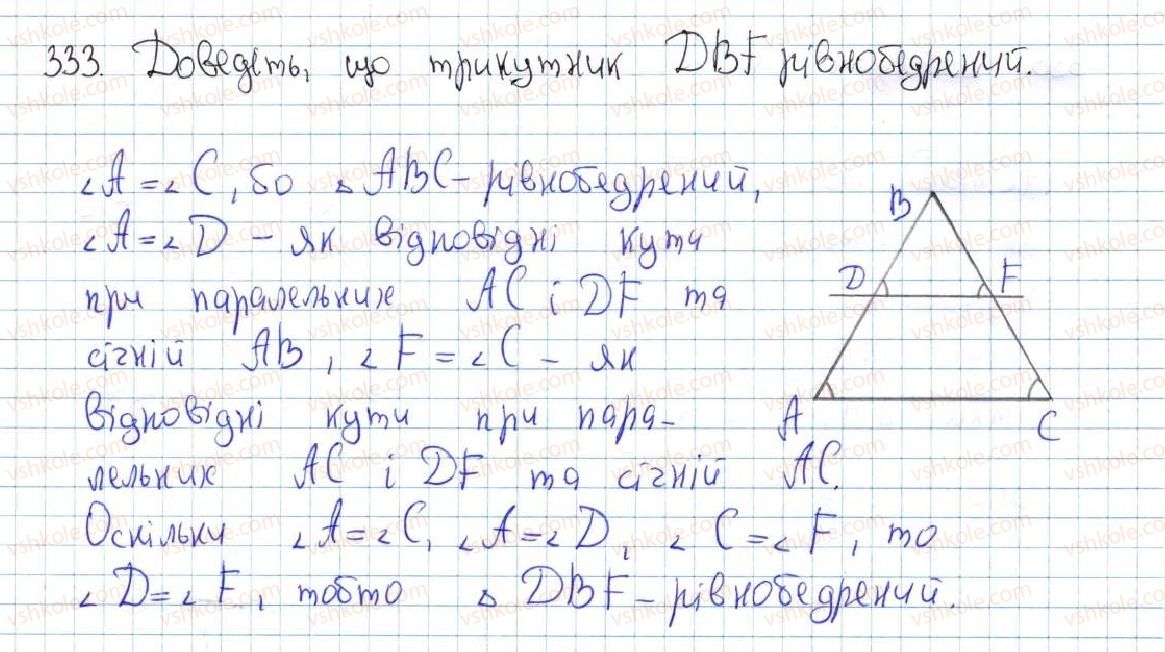 333. Доведіть, що трикутник DBF рівнобедрений.
∠A = ∠C, бо △ABC – рівнобедрений,
∠A = ∠D – як відповідні кути
при паралельних AC і DF та
січній AB, ∠F = ∠C – як
відповідні кути при пара-
лельних AC і DF та січній AC.
Оскільки ∠A = ∠C, ∠A = ∠D, ∠C = ∠F, то
∠D = ∠F, тобто △ DBF – рівнобедрений.
B
D
F
A
C
vshkole.com